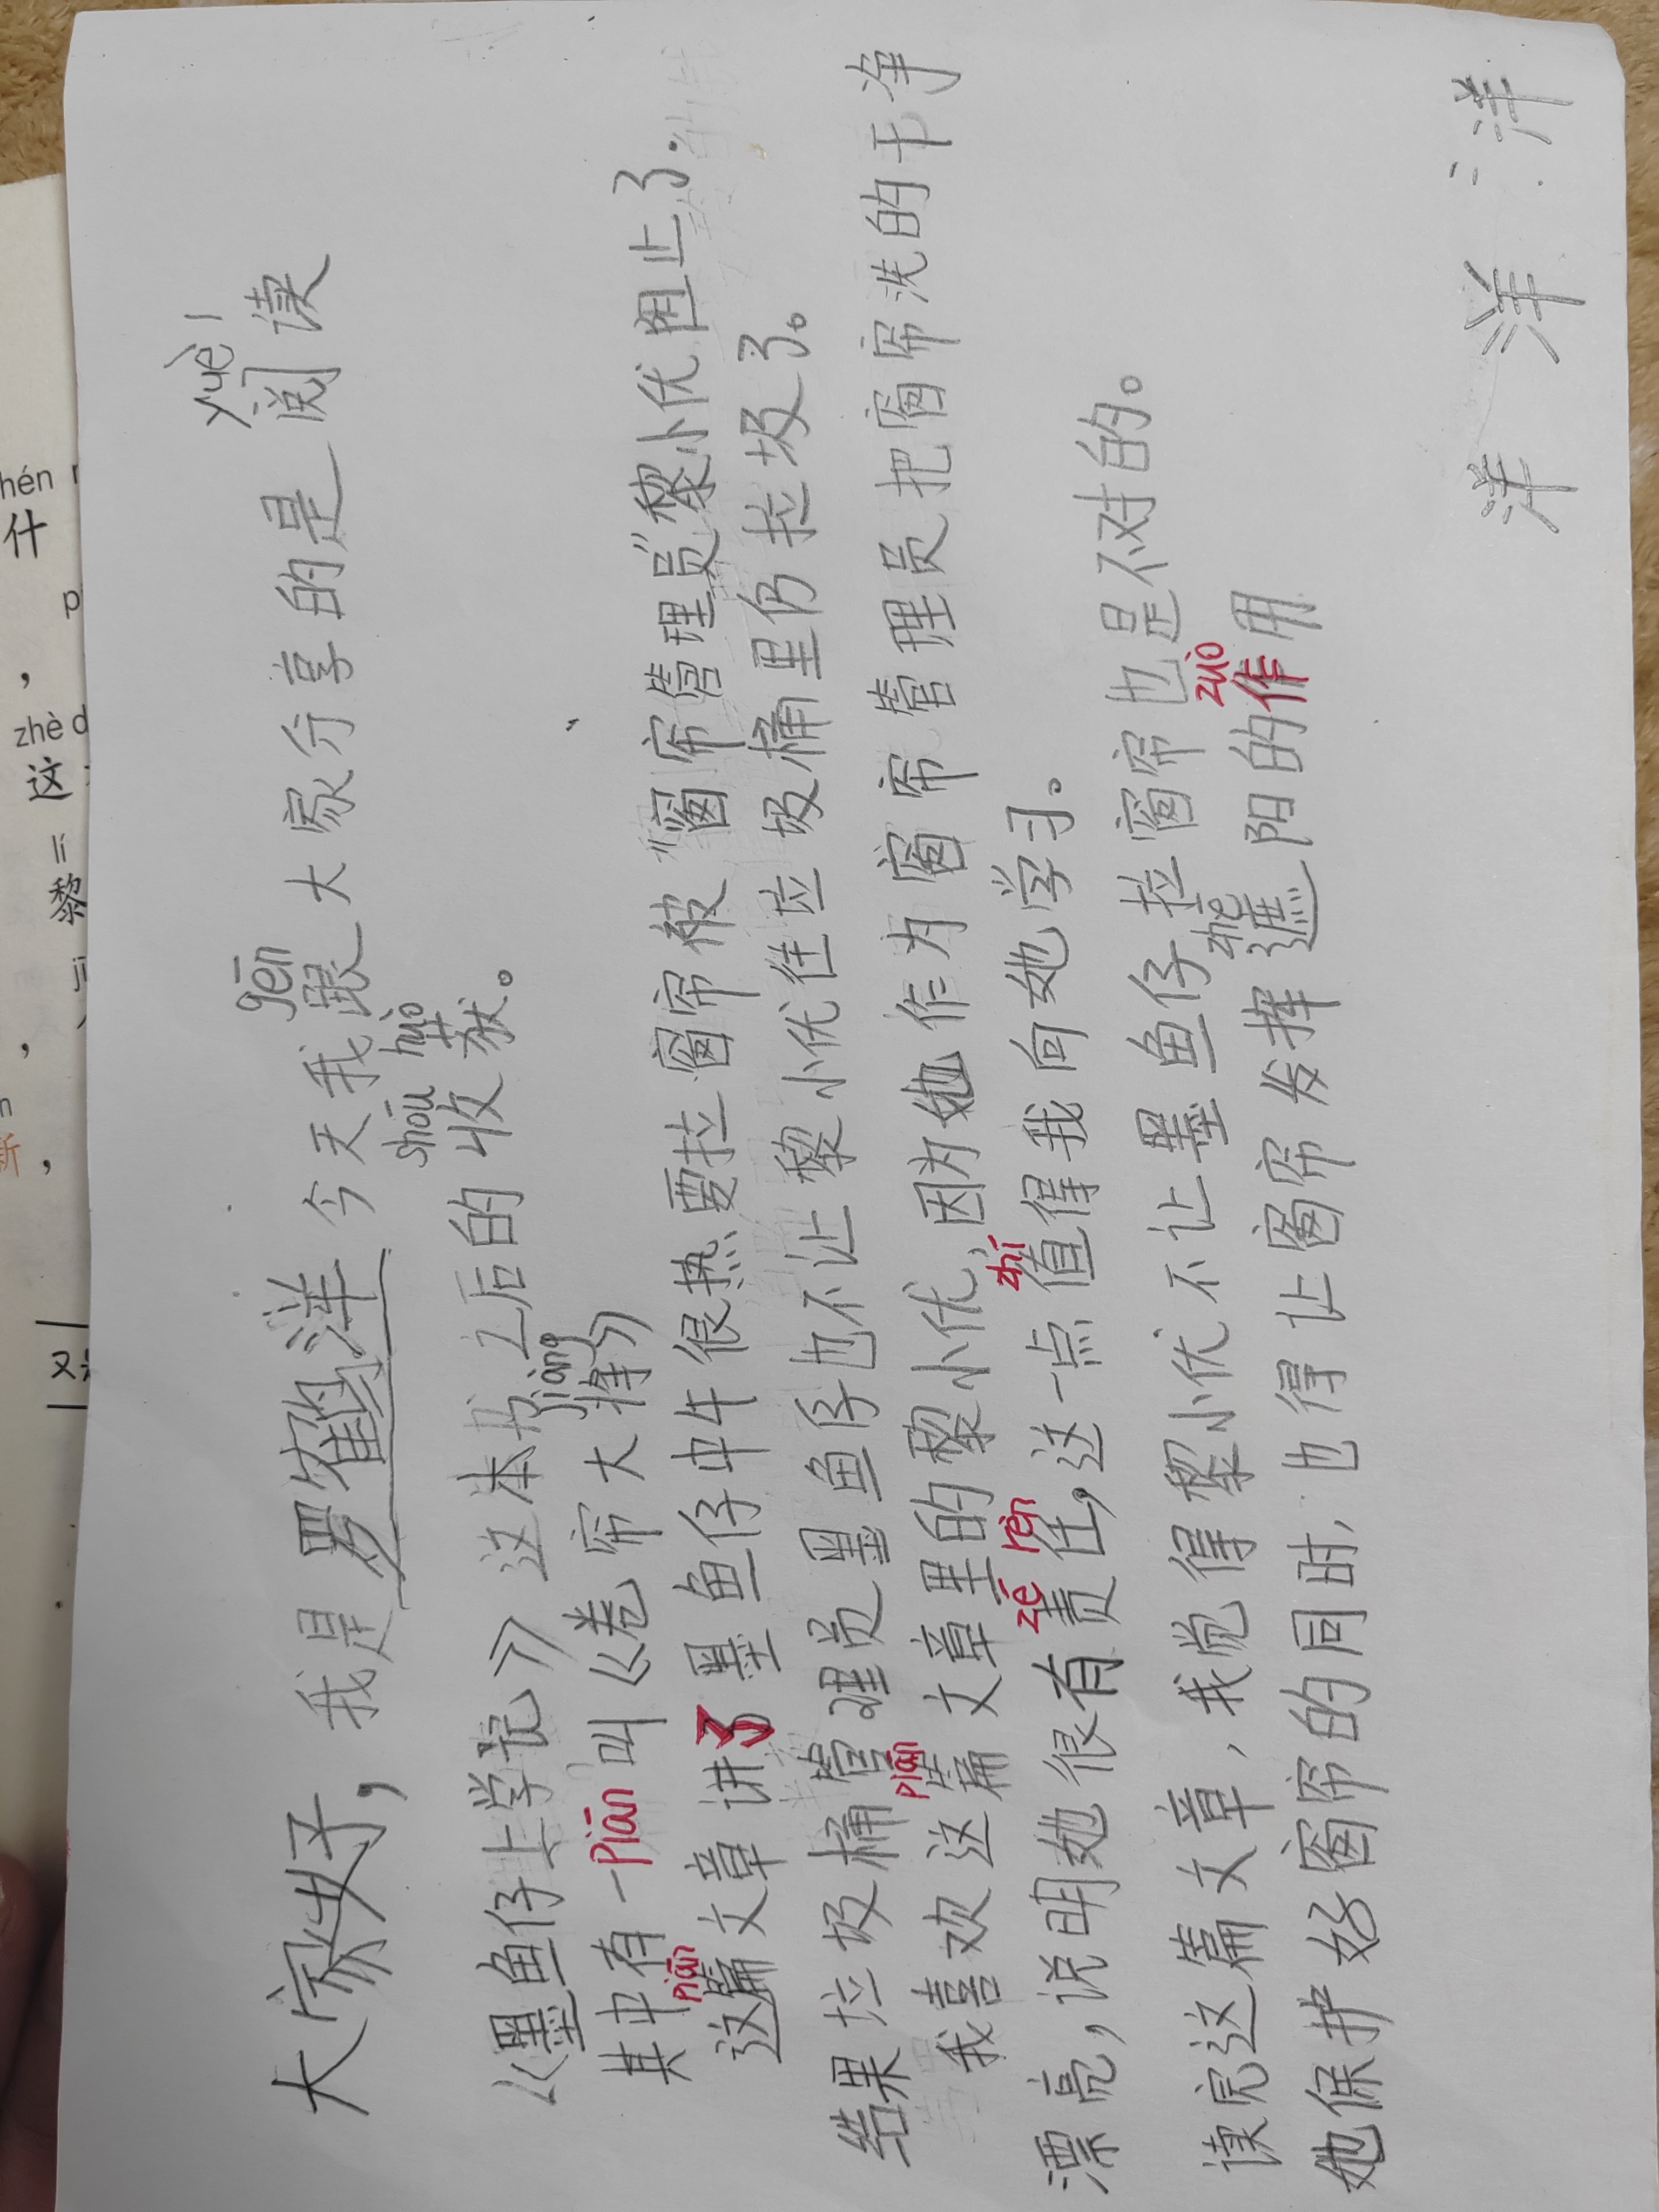 yuè
大家好，我是罗鹤洋今天我跟大家分享的是阅读
gēn
shōu huò
《墨鱼仔上学记》这本书之后的收获。
jiàng
其中有一piān叫《卷帘大将》
piān
这篇文章讲了墨鱼仔中午很热要拉窗帘被“窗帘管理员”黎小优阻止了。
结果垃圾桶管理员墨鱼仔也不让黎小优往垃圾桶里仍拉圾了。
piān
我喜欢这篇文章里的黎小优，因为她作为窗帘管理员把窗帘洗的干净
zé rèn zhí
漂亮，说明她很有责任，这一点值得我向她学习。
读完这篇文章，我觉得黎小优不让墨鱼仔拉窗帘也是不对的。
zhē zuò
她保护好窗帘的同时，也得让窗帘发挥遮阳的作用
洋 洋 洋
hén
什
，
zhè
这
lí
黎
，
新，
又